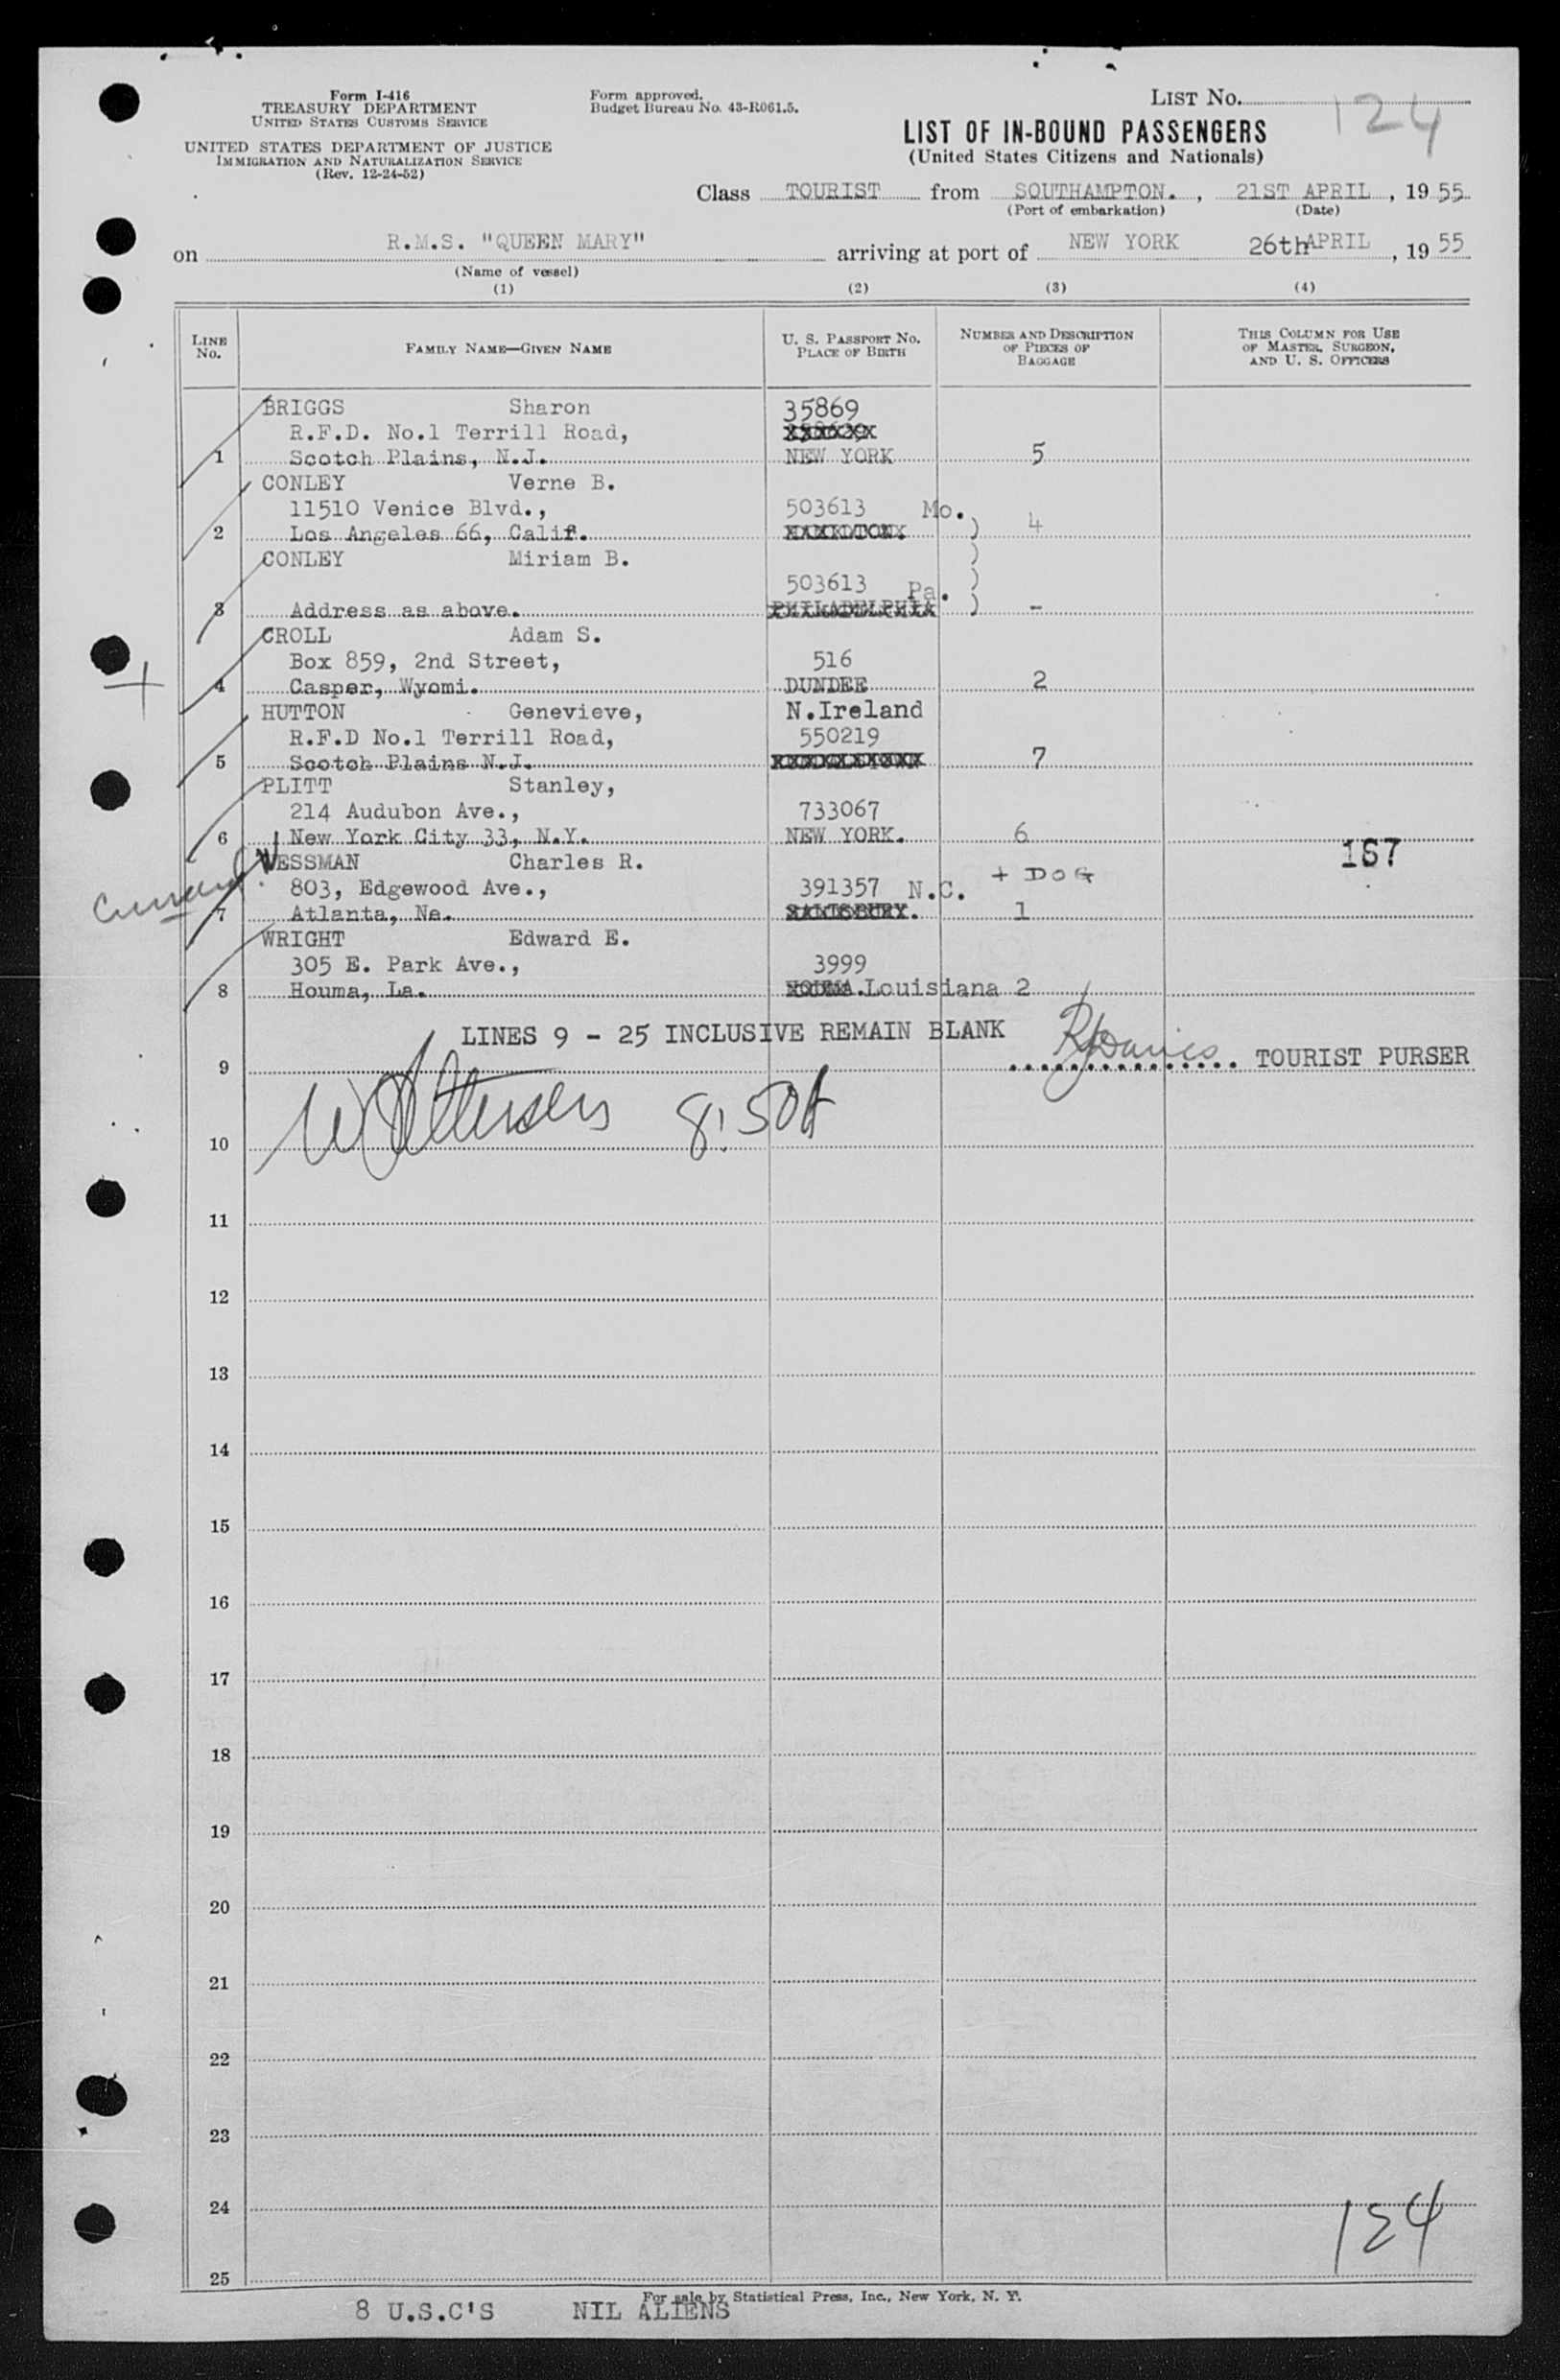 Form I-416
TREASURY DEPARTMENT
UNITED STATES CUSTOMS SERVICE
UNITED STATES DEPARTMENT OF JUSTICE
IMMIGRATION AND NATURALIZATION SERVICE
(Rev. 12-24-52)
Form approved.
Budget Bureau No. 43-R061.5.
LIST No. 124
LIST OF IN-BOUND PASSENGERS
(United States Citizens and Nationals)
Class TOURIST from SOUTHAMPTON. , 21ST APRIL , 19 55
(Port of embarkation) (Date)
on R.M.S. "QUEEN MARY" arriving at port of NEW YORK 26th APRIL , 19 55
(Name of vessel)
(1) (2) (3) (4)
LINE No. FAMILY NAME—GIVEN NAME U. S. PASSPORT No. PLACE OF BIRTH NUMBER AND DESCRIPTION OF PIECES OF BAGGAGE THIS COLUMN FOR USE OF MASTER, SURGEON, AND U. S. OFFICERS
BRIGGS Sharon 35869
R.F.D. No.1 Terrill Road,
1 Scotch Plains, N.J. NEW YORK 5
CONLEY Verne B.
11510 Venice Blvd., 503613 Mo.
2 Los Angeles 66, Calif. ) 4
CONLEY Miriam B. )
503613 Pa. )
3 Address as above. PHILADELPHIA ) -
CROLL Adam S.
Box 859, 2nd Street, 516
4 Casper, Wyomi. DUNDEE 2
HUTTON Genevieve, N.Ireland
R.F.D No.1 Terrill Road, 550219
5 Scotch Plains N.J. 7
PLITT Stanley,
214 Audubon Ave., 733067
6 New York City 33, N.Y. NEW YORK. 6
WESSMAN Charles R. 167
803, Edgewood Ave., 391357 N.C. + DOG
7 Atlanta, Ne. SALISBURY. 1
WRIGHT Edward E.
305 E. Park Ave., 3999
8 Houma, La. HOUMA. Louisiana 2
LINES 9 - 25 INCLUSIVE REMAIN BLANK
9 RJDavies TOURIST PURSER
10
11
12
13
14
15
16
17
18
19
20
21
22
23
24 124
25
For sale by Statistical Press, Inc., New York, N. Y.
8 U.S.C'S NIL ALIENS